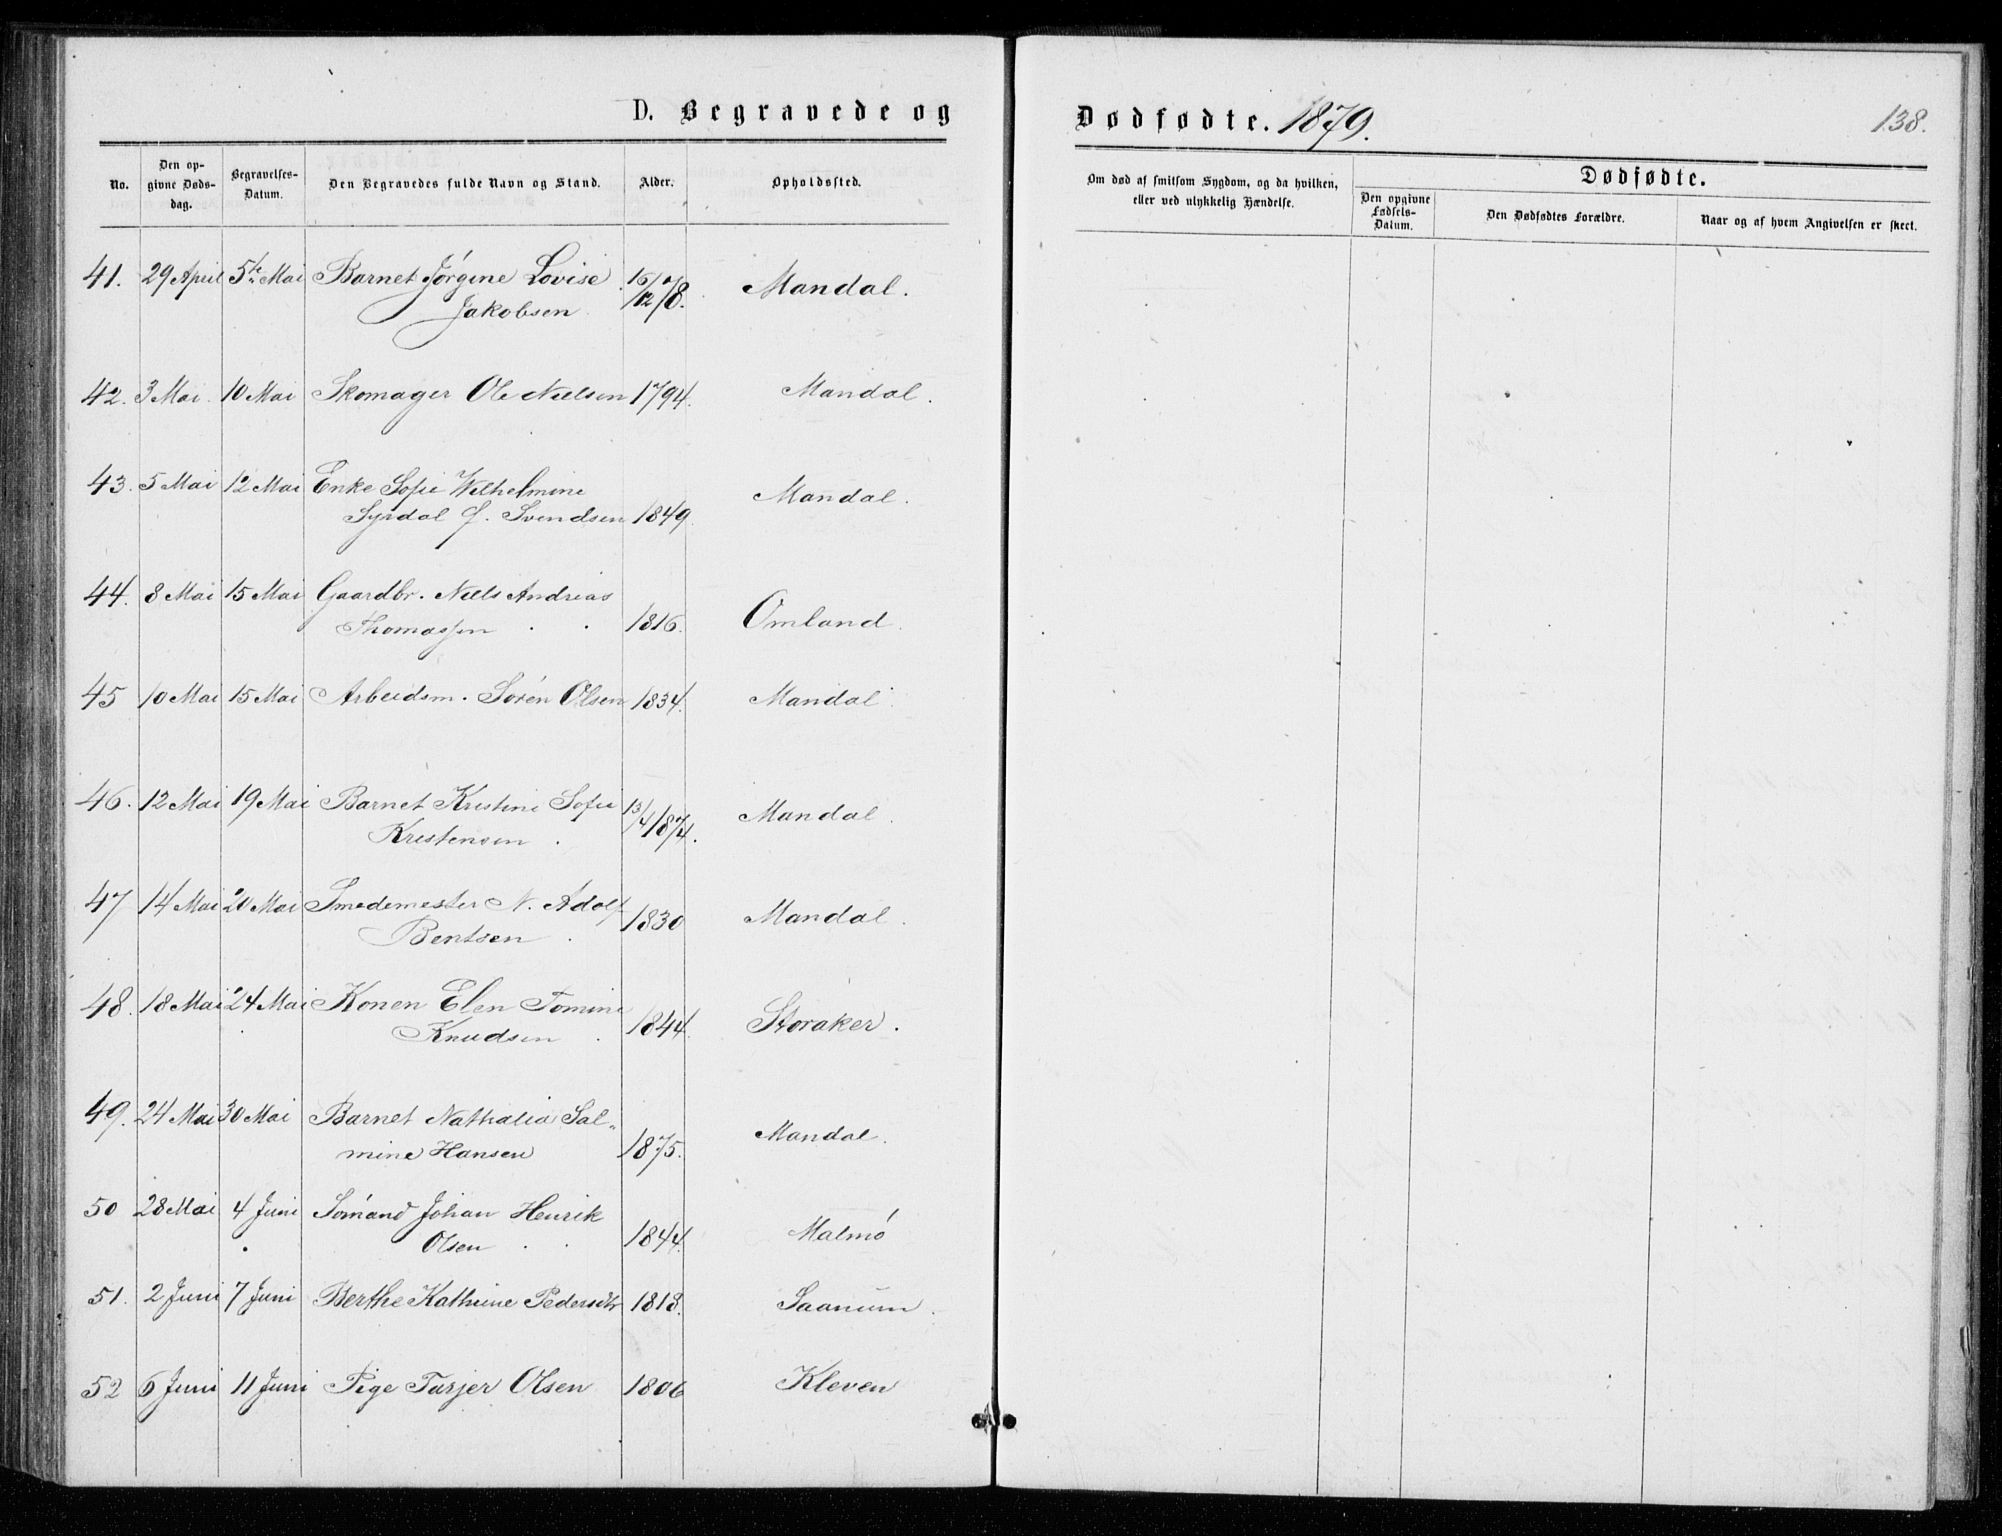 D. Begravede og
No. Den opgivne Dødsdag. Begravelses-Datum. Den Begravedes fulde Navn og Stand. Alder. Opholdssted.
41. 29 April 5te Mai Barnet Jørgine Lovise 16/12 78. Mandal.
Jakobsen
42. 3 Mai. 10 Mai Skomager Ole Nielsen 1794. Mandal.
43. 5 Mai 12 Mai Enke Sofie Wilhelmine Mandal.
Syrdal f. Svendsen 1849.
44. 8 Mai 15 Mai Gaardbr. Niels Andreas
Thomassen 1816. Omland.
45 10 Mai 15 Mai Arbeidsm. Søren Olsen 1834. Mandal
46. 12 Mai 19 Mai Barnet Kristine Sofie 13/4 1874. Mandal.
Kristensen.
47 14 Mai 20 Mai Smedemester N. Adolf 1830 Mandal.
Bentsen.
48. 18 Mai 24 Mai Konen Elen Tomine
Knudsen. 1844. Storaker.
49. 24 Mai 30 Mai Barnet Nathalia Sal-
mine Hansen 1875. Mandal.
50 28 Mai 4 Juni Sømand Johan Henrik
Olsen 1844. Malmø
51. 2 Juni 7 Juni Berthe Kathrine Pedersdtr 1818. Saanum.
52 6 Juni 11 Juni Pige Tarjer Olsen 1806 Kleven
Dødfødte. 1879.
138.
Om død af smitsom Sygdom, og da hvilken, eller ved ulykkelig Hændelse.
Dødfødte.
Den opgivne Fødsels-Datum. Den Dødfødtes Forældre. Naar og af hvem Angivelsen er skeet.